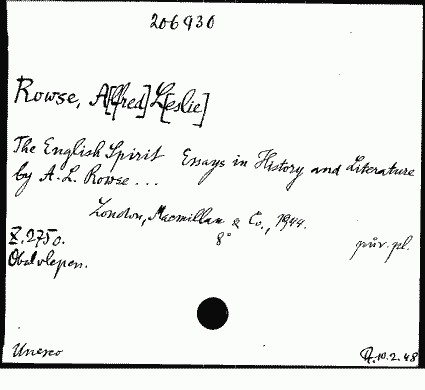 206930
Rowse, A[lfred] L[eslie]
The English Spirit Essays in History and Literature
by A. L. Rowse ...
London, Macmillan & Co., 1944.
Z. 2750. 8° pův. pl.
Obal vlepen.
Unesco 10.2.48